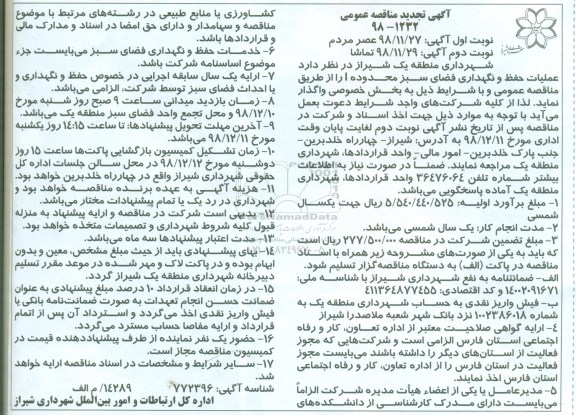 آگهی تجدید مناقصه عمومی
۹۸ - ۱۲۳۲
نوبت اول آگهی: ۹۸/۱۱/۲۷ عصر مردم
نوبت دوم آگهی: ۹۸/۱۱/۲۹ تماشا
شهرداری منطقه یک شیراز در نظر دارد
عملیات حفظ و نگهداری فضای سبز محدوده ۱ را از طریق
مناقصه عمومی و با شرایط ذیل به بخش خصوصی واگذار
نماید. لذا از کلیه شرکت‌های واجد شرایط دعوت بعمل
می‌آید با توجه به موارد ذیل جهت اخذ اسناد و شرکت در
مناقصه پس از تاریخ نشر آگهی نوبت دوم لغایت پایان وقت
اداری مورخ ۹۸/۱۲/۱۱ به آدرس: شیراز- چهارراه خلدبرین-
جنب پارک خلدبرین- امور مالی- واحد قراردادها، شهرداری
منطقه یک مراجعه نمایند. ضمناً در صورت نیاز به اطلاعات
بیشتر شماره تلفن ۳۶۴۷۶۰۶۴ واحد قراردادها، شهرداری
منطقه یک آماده پاسخگویی می‌باشد.
۱- مبلغ برآورد اولیه: ۵/۵۴۰/۴۴۰/۵۲۵ ریال جهت یکسال
شمسی
۲- مدت انجام کار: یک سال شمسی می‌باشد.
۳- مبلغ تضمین شرکت در مناقصه ۲۷۷/۵۰۰/۰۰۰ ریال است
که باید به یکی از صورت‌های مشروحه زیر همراه با اسناد
مناقصه در پاکت (الف) به دستگاه مناقصه‌گزار تسلیم شود.
الف- ضمانتنامه به نفع شهرداری شیراز با شناسه ملی:
۱۴۰۰۲۰۹۱۶۷۱ و کد اقتصادی: ۴۱۱۳۶۴۸۷۷۴۵۵
ب- فیش واریز نقدی به حساب شهرداری منطقه یک به
شماره ۱۰۰۲۳۸۶۰۱۸ نزد بانک شهر شعبه ملاصدرا شیراز
۴- ارایه گواهی صلاحیت معتبر از اداره تعاون، کار و رفاه
اجتماعی استان فارس الزامی است و شرکت‌هایی که مجوز
فعالیت از استان‌های دیگر را داشته باشند می‌بایست مجوز
فعالیت در استان فارس را از اداره تعاون، کار و رفاه اجتماعی
استان فارس اخذ نمایند.
۵- مدیرعامل یا یکی از اعضاء هیأت مدیره شرکت الزاماً
می‌بایست دارای مدرک کارشناسی از دانشکده‌های
کشاورزی یا منابع طبیعی در رشته‌های مرتبط با موضوع
مناقصه و سهامدار و دارای حق امضا در اسناد و مدارک مالی
و قراردادها باشد.
۶- خدمات حفظ و نگهداری فضای سبز می‌بایست جزء
موضوع اساسنامه شرکت باشد.
۷- ارایه یک سال سابقه اجرایی در خصوص حفظ و نگهداری و
یا احداث فضای سبز توسط شرکت، الزامی می‌باشد.
۸- زمان بازدید میدانی ساعت ۹ صبح روز شنبه مورخ
۹۸/۱۲/۱۰ و محل تجمع واحد فضای سبز منطقه یک می‌باشد.
۹- آخرین مهلت تحویل پیشنهادها: تا ساعت ۱۴:۱۵ روز یکشنبه
مورخ ۹۸/۱۲/۱۱ می‌باشد.
۱۰- زمان تشکیل کمیسیون بازگشایی پاکت‌ها ساعت ۱۵ روز
دوشنبه مورخ ۹۸/۱۲/۱۲ در محل سالن جلسات اداره کل
حقوقی شهرداری شیراز واقع در چهارراه خلدبرین خواهد بود.
۱۱- هزینه آگهی به عهده برنده مناقصه خواهد بود و
شهرداری در رد یک یا تمام پیشنهادات مختار می‌باشد.
۱۲- بدیهی است شرکت در مناقصه و ارایه پیشنهاد به منزله
قبول کلیه شروط شهرداری و تصمیمات متخذه خواهد بود.
۱۳- مدت اعتبار پیشنهادها سه ماه می‌باشد.
۱۴- بهای پیشنهادی باید از حیث مبلغ مشخص، معین و بدون
ابهام بوده و در پاکت لاک و مهر شده در موعد مقرر تسلیم
دبیرخانه شهرداری منطقه یک شیراز گردد.
۱۵- در زمان انعقاد قرارداد ۱۰ درصد مبلغ پیشنهادی به عنوان
ضمانت حسن انجام تعهدات به صورت ضمانت‌نامه بانکی یا
فیش واریز نقدی اخذ می‌گردد و استرداد آن پس از اتمام
قرارداد و ارایه مفاصا حساب مسترد می‌گردد.
۱۶- حضور یک نفر نماینده از طرف پیشنهاددهنده قیمت در
کمیسیون مناقصه مجاز است.
۱۷- سایر شرایط و مشخصات در اسناد مناقصه ارایه خواهد
شد.
شناسه آگهی: ۷۷۲۳۹۶ ۱۴۲۸۹/ م الف
اداره کل ارتباطات و امور بین‌الملل شهرداری شیراز